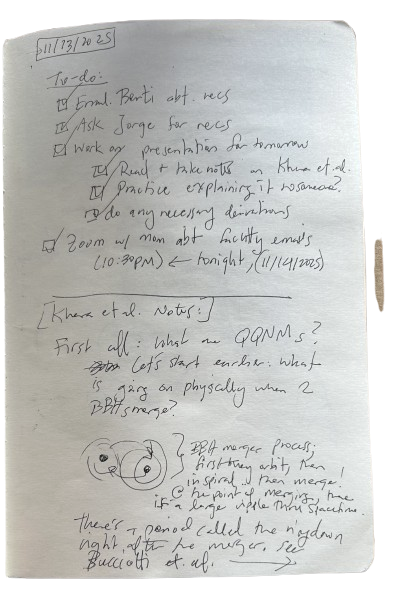 11/13/2025
To-do:
Email Berti abt. recs
Ask Jorge for recs
Work on presentation for tomorrow
Read + take notes on Khera et al.
Practice explaining it to someone?
do any necessary derivations
Zoom w/ mom abt faculty emails
(10:30PM) ← tonight, (11/14/2025)
[Khera et al. Notes:]
First all: What are QQNMs?
Let's start earlier: what
is going on physically when 2
BBHs merge?
BBH merger process:
first they orbit, then
inspiral, then merge!
@ the point of merging, there
is a large ripple thru spacetime.
there's a period called the ringdown
right after the merger. see
Bucciotti et al. →